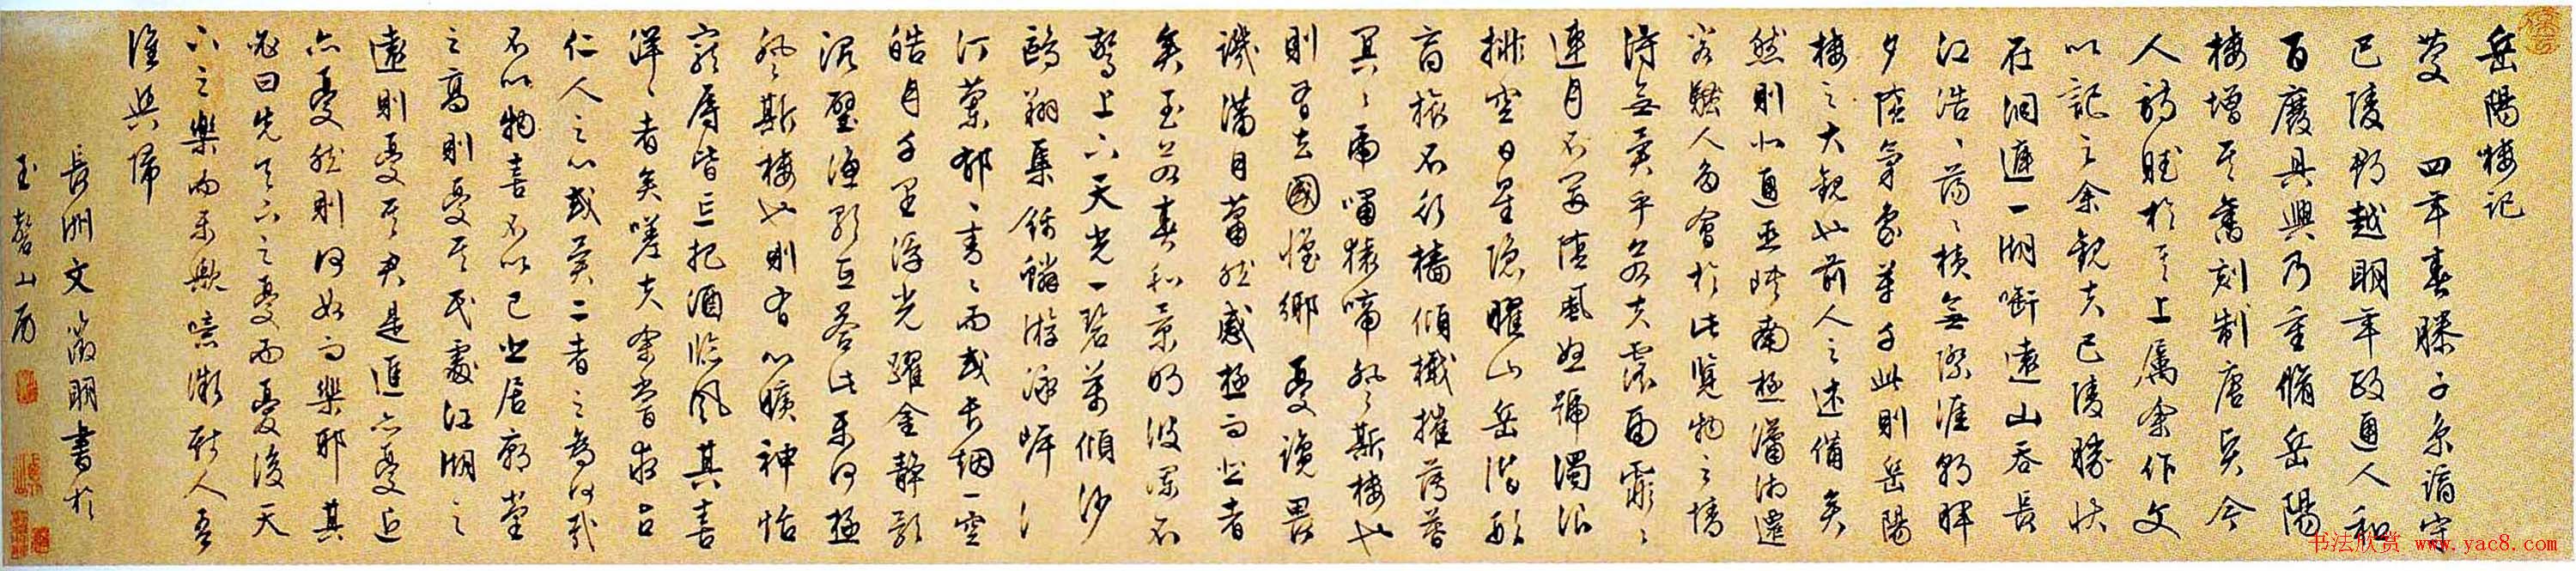 岳陽樓記
慶 四年春滕子京謫守
巴陵郡越明年政通人和
百廢具興乃重脩岳陽
樓增其舊刻制唐賢今
人詩賦於其上屬余作文
以記之余觀夫巴陵勝狀
在洞庭一湖啣遠山吞長
江浩〻蕩〻橫無際涯朝暉
夕陰氣象萬千此則岳陽
樓之大觀也前人之述備矣
然則北通巫峽南極瀟湘遷
客騷人多會於此覽物之情
得無異乎若夫霪雨霏〻
連月不開陰風怒號濁浪
排空日星隱曜山岳潛形
商旅不行檣傾檝摧薄暮
冥〻虎嘯猿啼登斯樓也
則有去國懷鄉憂讒畏
譏滿目蕭然感極而悲者
矣至若春和景明波瀾不
驚上下天光一碧萬頃沙
鷗翔集錦鱗游泳岸芷
汀蘭郁〻青〻而或長烟一空
皓月千里浮光躍金靜影
沉璧漁歌互答此樂何極
登斯樓也則有心曠神怡
寵辱皆忘把酒臨風其喜
洋〻者矣嗟夫余嘗求古
仁人之心或異二者之為何哉
不以物喜不以己悲居廟堂
之高則憂其民處江湖之
遠則憂其君是進亦憂退
亦憂然則何如而樂耶其
必曰先天下之憂而憂後天
下之樂而樂歟噫微斯人吾
誰與歸
長洲文徵明書於
玉磬山房
书法欣赏 www.yac8.com